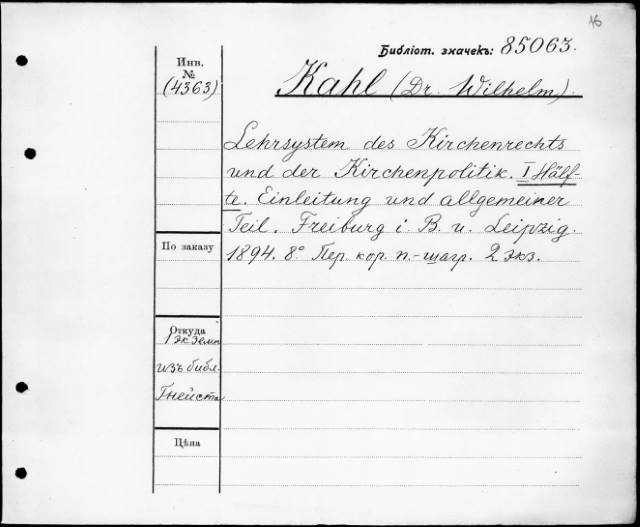 16
Библіот. значекъ: 85063.
Инв.
№
(4363)
Kahl (Dr. Wilhelm).
Lehrsystem des Kirchenrechts
und der Kirchenpolitik. I Hälf-
te. Einleitung und allgemeiner
Teil. Freiburg i. B. u. Leipzig.
1894. 8° Пер. кор. п.-шагр. 2 экз.
По заказу
Откуда
1 экземп
изъ библ.
Гнейста
Цѣна